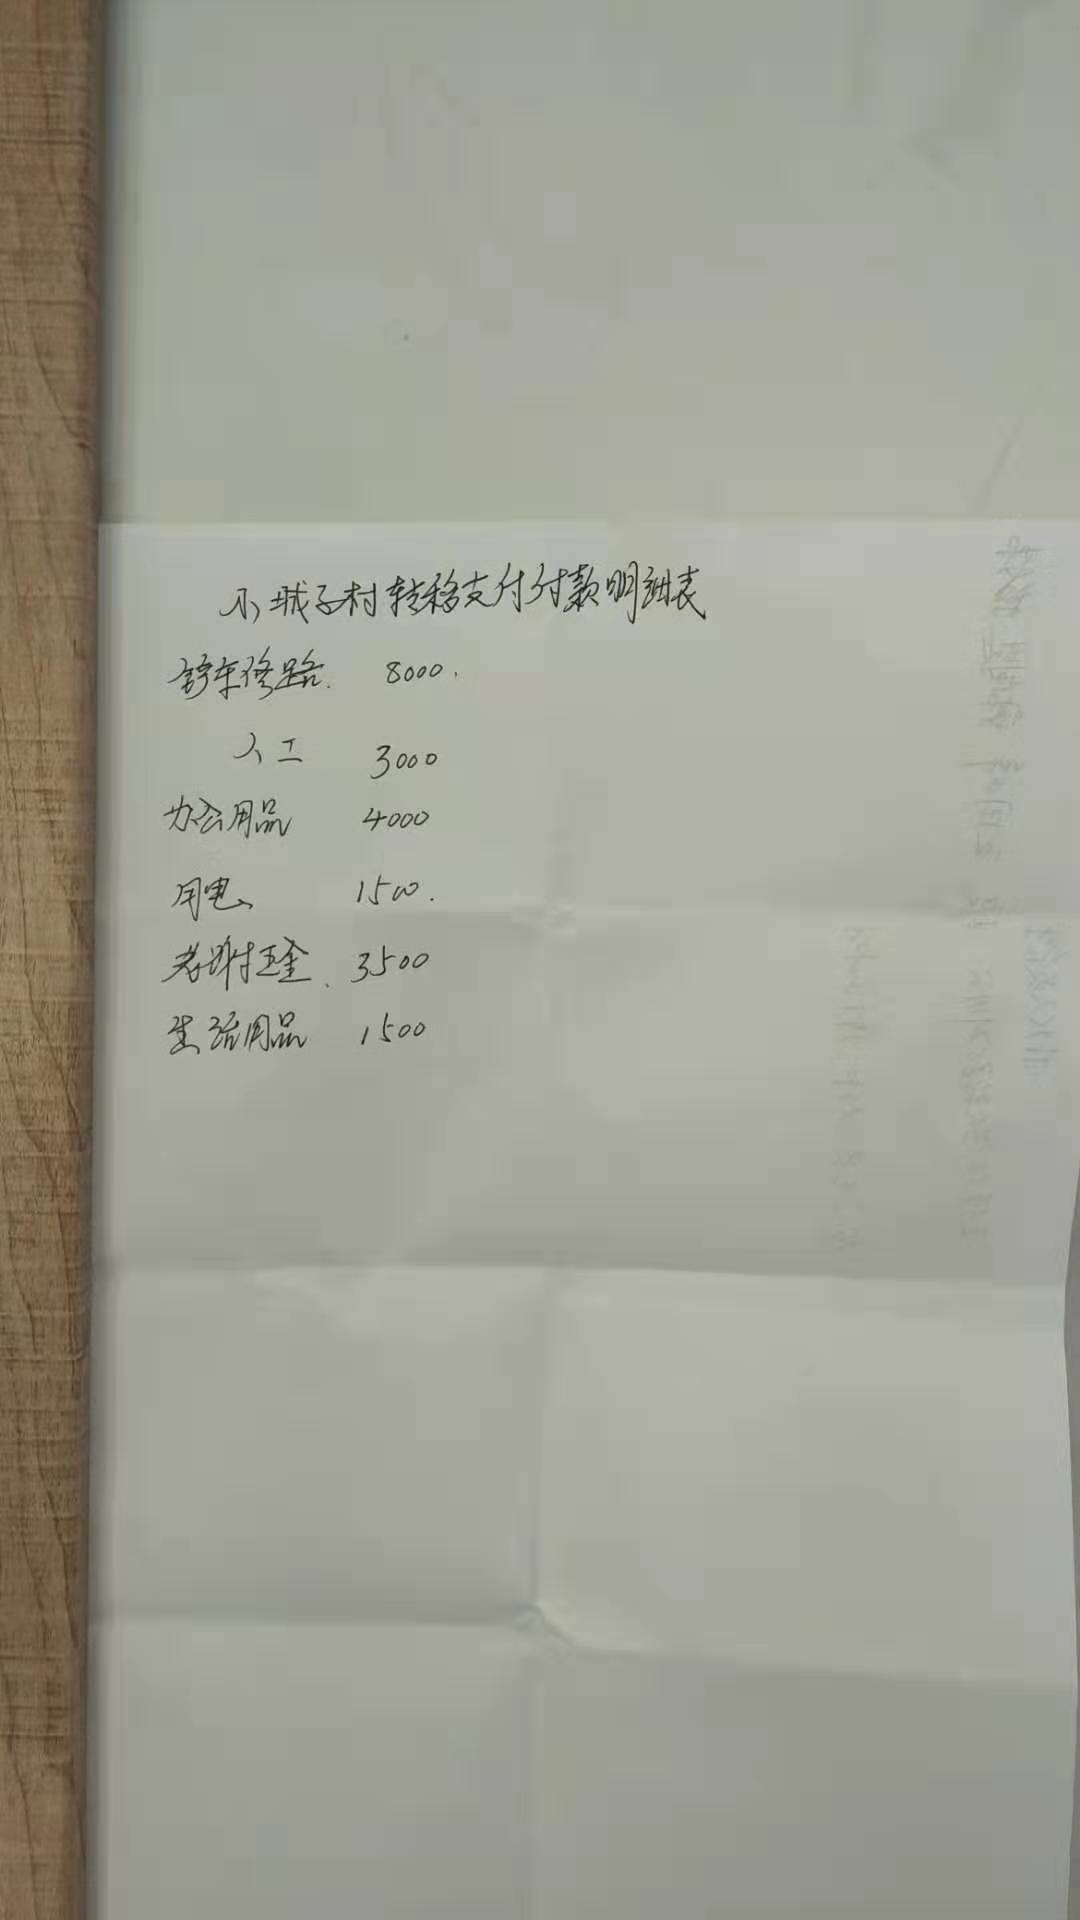 小城子村转移支付付款明细表
铲车修路. 8000.
人工 3000
办公用品 4000
用电 1500.
老谢五金. 3500
生活用品 1500